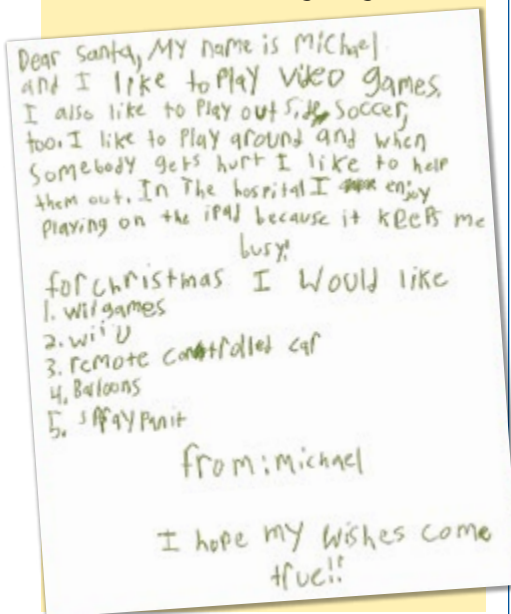 Dear Santa, My name is Michael
and I like to Play Video games.
I also like to Play out side, Soccer,
too. I like to Play around and when
Somebody gets hurt I like to help
them out. In The hospital I enjoy
Playing on the iPad because it keeps me
busy!
for christmas I Would like
1. wii games
2. wii U
3. remote controlled car
4. Balloons
5. spray panit
from: michael
I hope my Wishes come
true!!